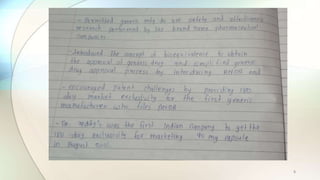 - Permitted generic mfg to use safety and effectiveness
research performed by the brand name pharmaceutical
companies
- Introduced the concept of bioequivalence to obtain
the approval of generic drug and simplified generic
drug approval process by introducing ANDA and
- encouraged patent challenges by providing 180
day market exclusivity for the first generic
manufacturer who files ANDA
- Dr. Reddy's was the first Indian Company to get the
180 day exclusivity for marketing 40 mg capsule
in August 2001